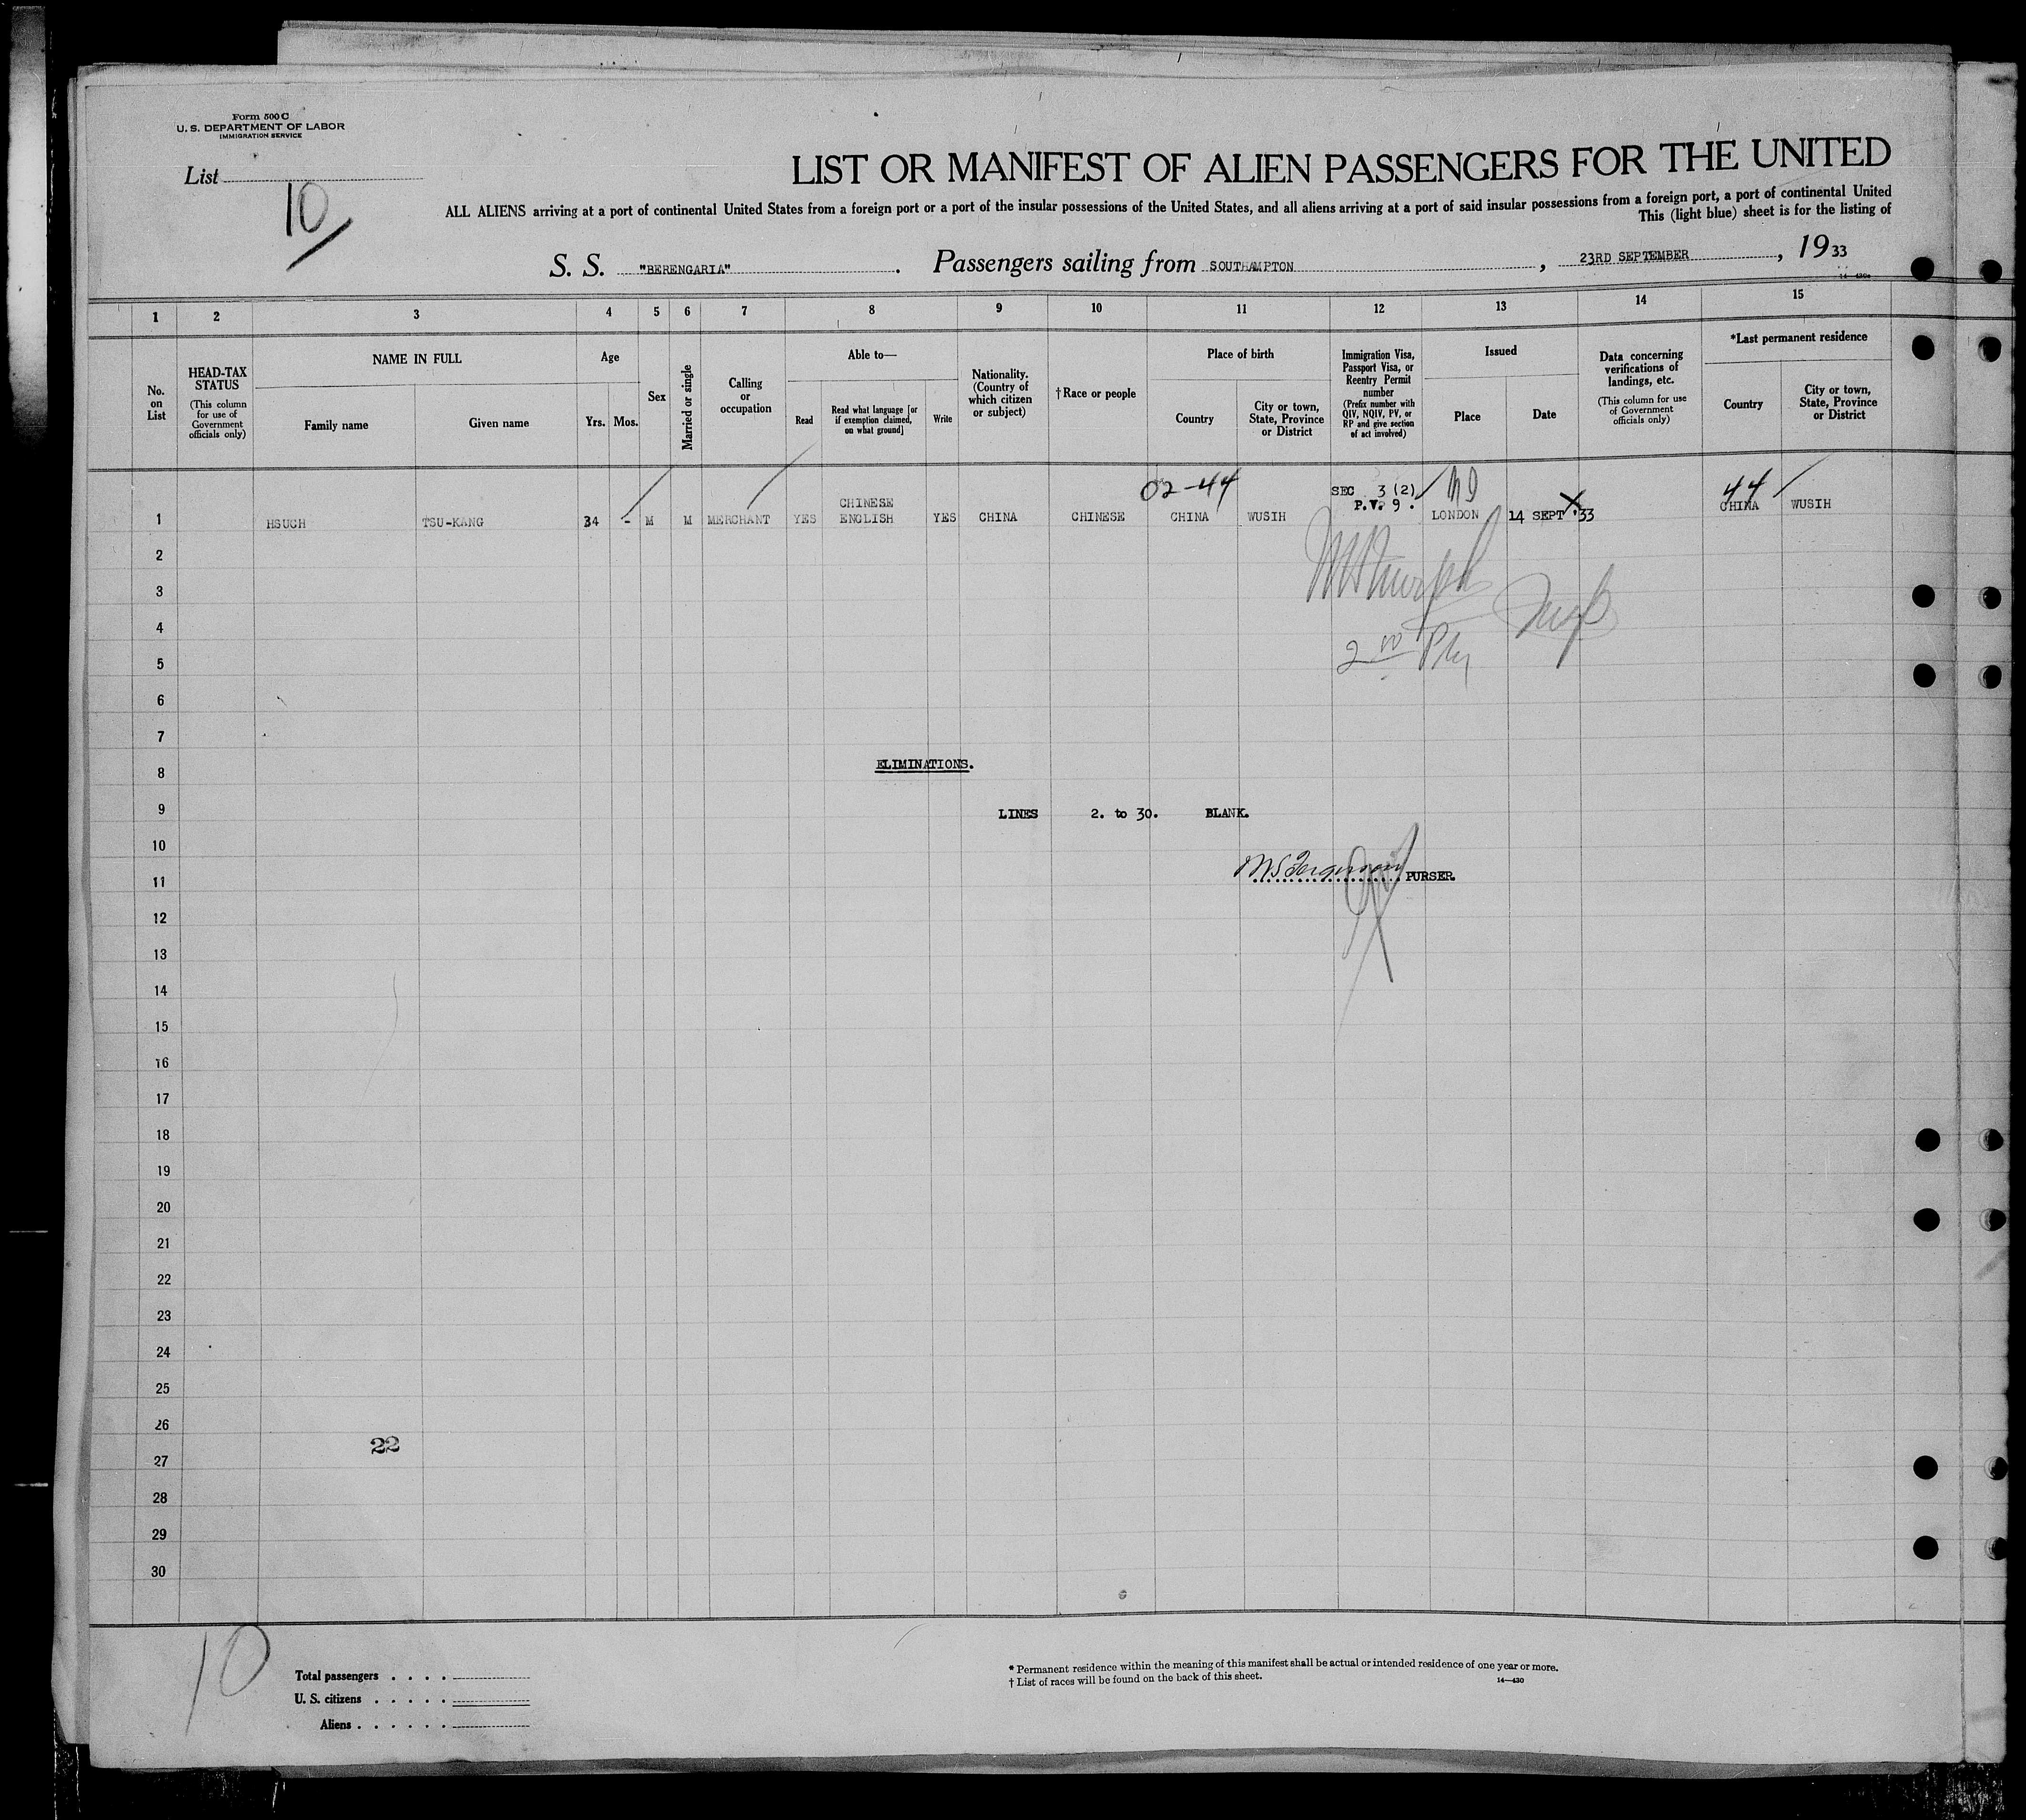 Form 500 C
U. S. DEPARTMENT OF LABOR
IMMIGRATION SERVICE
List
10
LIST OR MANIFEST OF ALIEN PASSENGERS FOR THE UNITED
ALL ALIENS arriving at a port of continental United States from a foreign port or a port of the insular possessions of the United States, and all aliens arriving at a port of said insular possessions from a foreign port, a port of continental United
This (light blue) sheet is for the listing of
S. S. "BERENGARIA". Passengers sailing from SOUTHAMPTON, 23RD SEPTEMBER, 1933
1 2 3 4 5 6 7 8 9 10 11 12 13 14 15
No. on List
HEAD-TAX STATUS (This column for use of Government officials only)
NAME IN FULL
Family name
Given name
Age
Yrs.
Mos.
Sex
Married or single
Calling or occupation
Able to—
Read
Read what language [or if exemption claimed, on what ground]
Write
Nationality. (Country of which citizen or subject)
†Race or people
Place of birth
Country
City or town, State, Province or District
Immigration Visa, Passport Visa, or Reentry Permit number (Prefix number with QIV, NQIV, PV, or RP and give section of act involved)
Issued
Place
Date
Data concerning verifications of landings, etc. (This column for use of Government officials only)
*Last permanent residence
Country
City or town, State, Province or District
02-44
44
SEC 3 (2)
P.V. 9.
1 HSUCH TSU-KANG 34 - M M MERCHANT YES CHINESE ENGLISH YES CHINA CHINESE CHINA WUSIH LONDON 14 SEPT '33 CHINA WUSIH
2
3
4
5
6
7
8
ELIMINATIONS.
9
LINES 2. to 30. BLANK.
10
11
PURSER.
12
13
14
15
16
17
18
19
20
21
22
23
24
25
26
22
27
28
29
30
10
Total passengers . . . .
U. S. citizens . . . . .
Aliens . . . . . .
* Permanent residence within the meaning of this manifest shall be actual or intended residence of one year or more.
† List of races will be found on the back of this sheet.
14—430